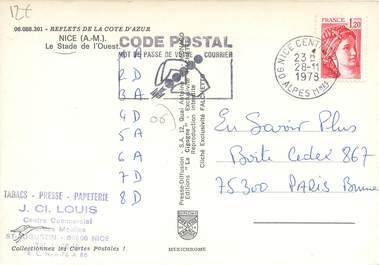 12€
06.088.301 - REFLETS DE LA COTE D'AZUR
NICE (A.-M.)
Le Stade de l'Ouest.
CODE POSTAL
MOT DE PASSE DE VOTRE COURRIER
06 NICE CENTR
23 H
28-11
1978
ALPES Mmes
1,20
FRANCE
2 D
3 A
4 D
5 A
6 A
7 D
8 D
Presse-Diffusion - S.A. 12, Quai
Editions "La Cigogne" - Exclusivité
Reproduction interdite
Cliché Exclusivité FALCHETTO
En Savoir Plus
Boîte Cedex 867
75300 PARIS Brune
TABACS - PRESSE - PAPETERIE
J. Cl. LOUIS
Centre Commercial
des Moulins
ST-AUGUSTIN - 06200 NICE
Collectionnez les Cartes Postales !
MEXICHROME